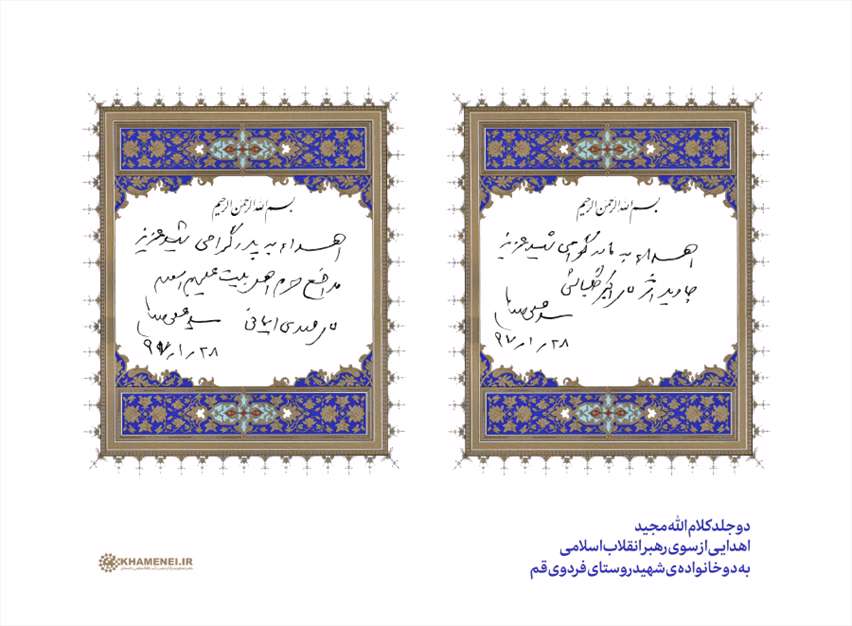 بسم الله الرحمن الرحیم
اهداء به مادر گرامی شهید عزیز
جاوید اثر اکبر
۹۷ر۱ر۲۸
بسم الله الرحمن الرحیم
اهداء به پدر گرامی شهید عزیز
مدافع حرم اهل بیت علیهم السلام
مهدی ایمانی
۹۷ر۱ر۲۸
دو جلد کلام الله مجید
اهدایی از سوی رهبر انقلاب اسلامی
به دو خانواده‌ی شهید روستای فردوی قم
KHAMENEI.IR